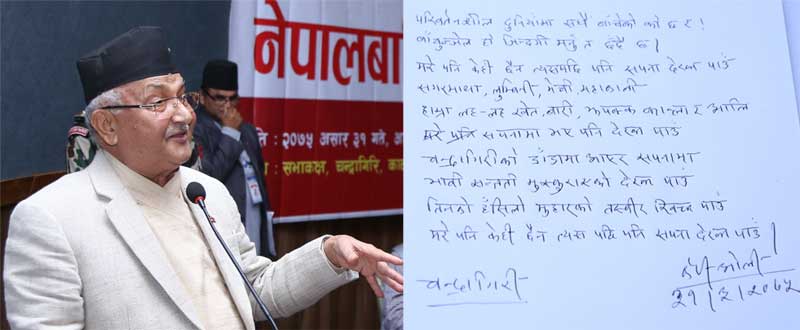 नेपालबा
ति : २०७५ असार ३१ गते, आ
: सभाकक्ष, चन्द्रागिरि, काठ
परिवर्तनशील दुनियाँमा सधैं बाँचेको को छ र !
बाँचुन्जेल हो जिन्दगी मर्नु त छँदै छ ।
मरे पनि केही छैन त्यसपछि पनि सपना देख्न पाउँ
सगरमाथा, लुम्बिनी, मेची महाकाली
हाम्रा लह-लह खेत, बारी, कान्ला र आलि
मरे पनि सपनामा भए पनि देख्न पाउँ
चन्द्रागिरीको डाँडामा आएर सपनामा
भावी सन्तती मुस्कुराएको देख्न पाउँ
तिनको हँसिलो मुहारको तस्वीर खिच्न पाउँ
मरे पनि केही छैन त्यस पछि पनि सपना देख्न पाउँ ।
चन्द्रागिरी
ओली
३१/३/२०७५